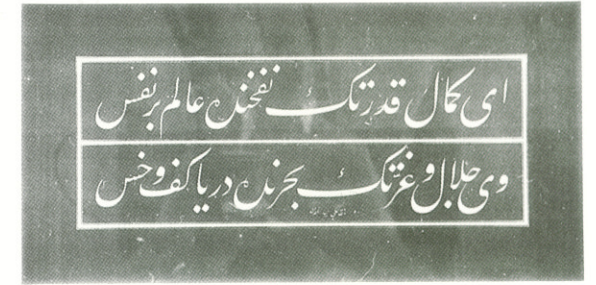 ای کمال قدرتک نفخنده عالم بر نفس
وی جلال و عزتک بحرنده دریا کف و خس